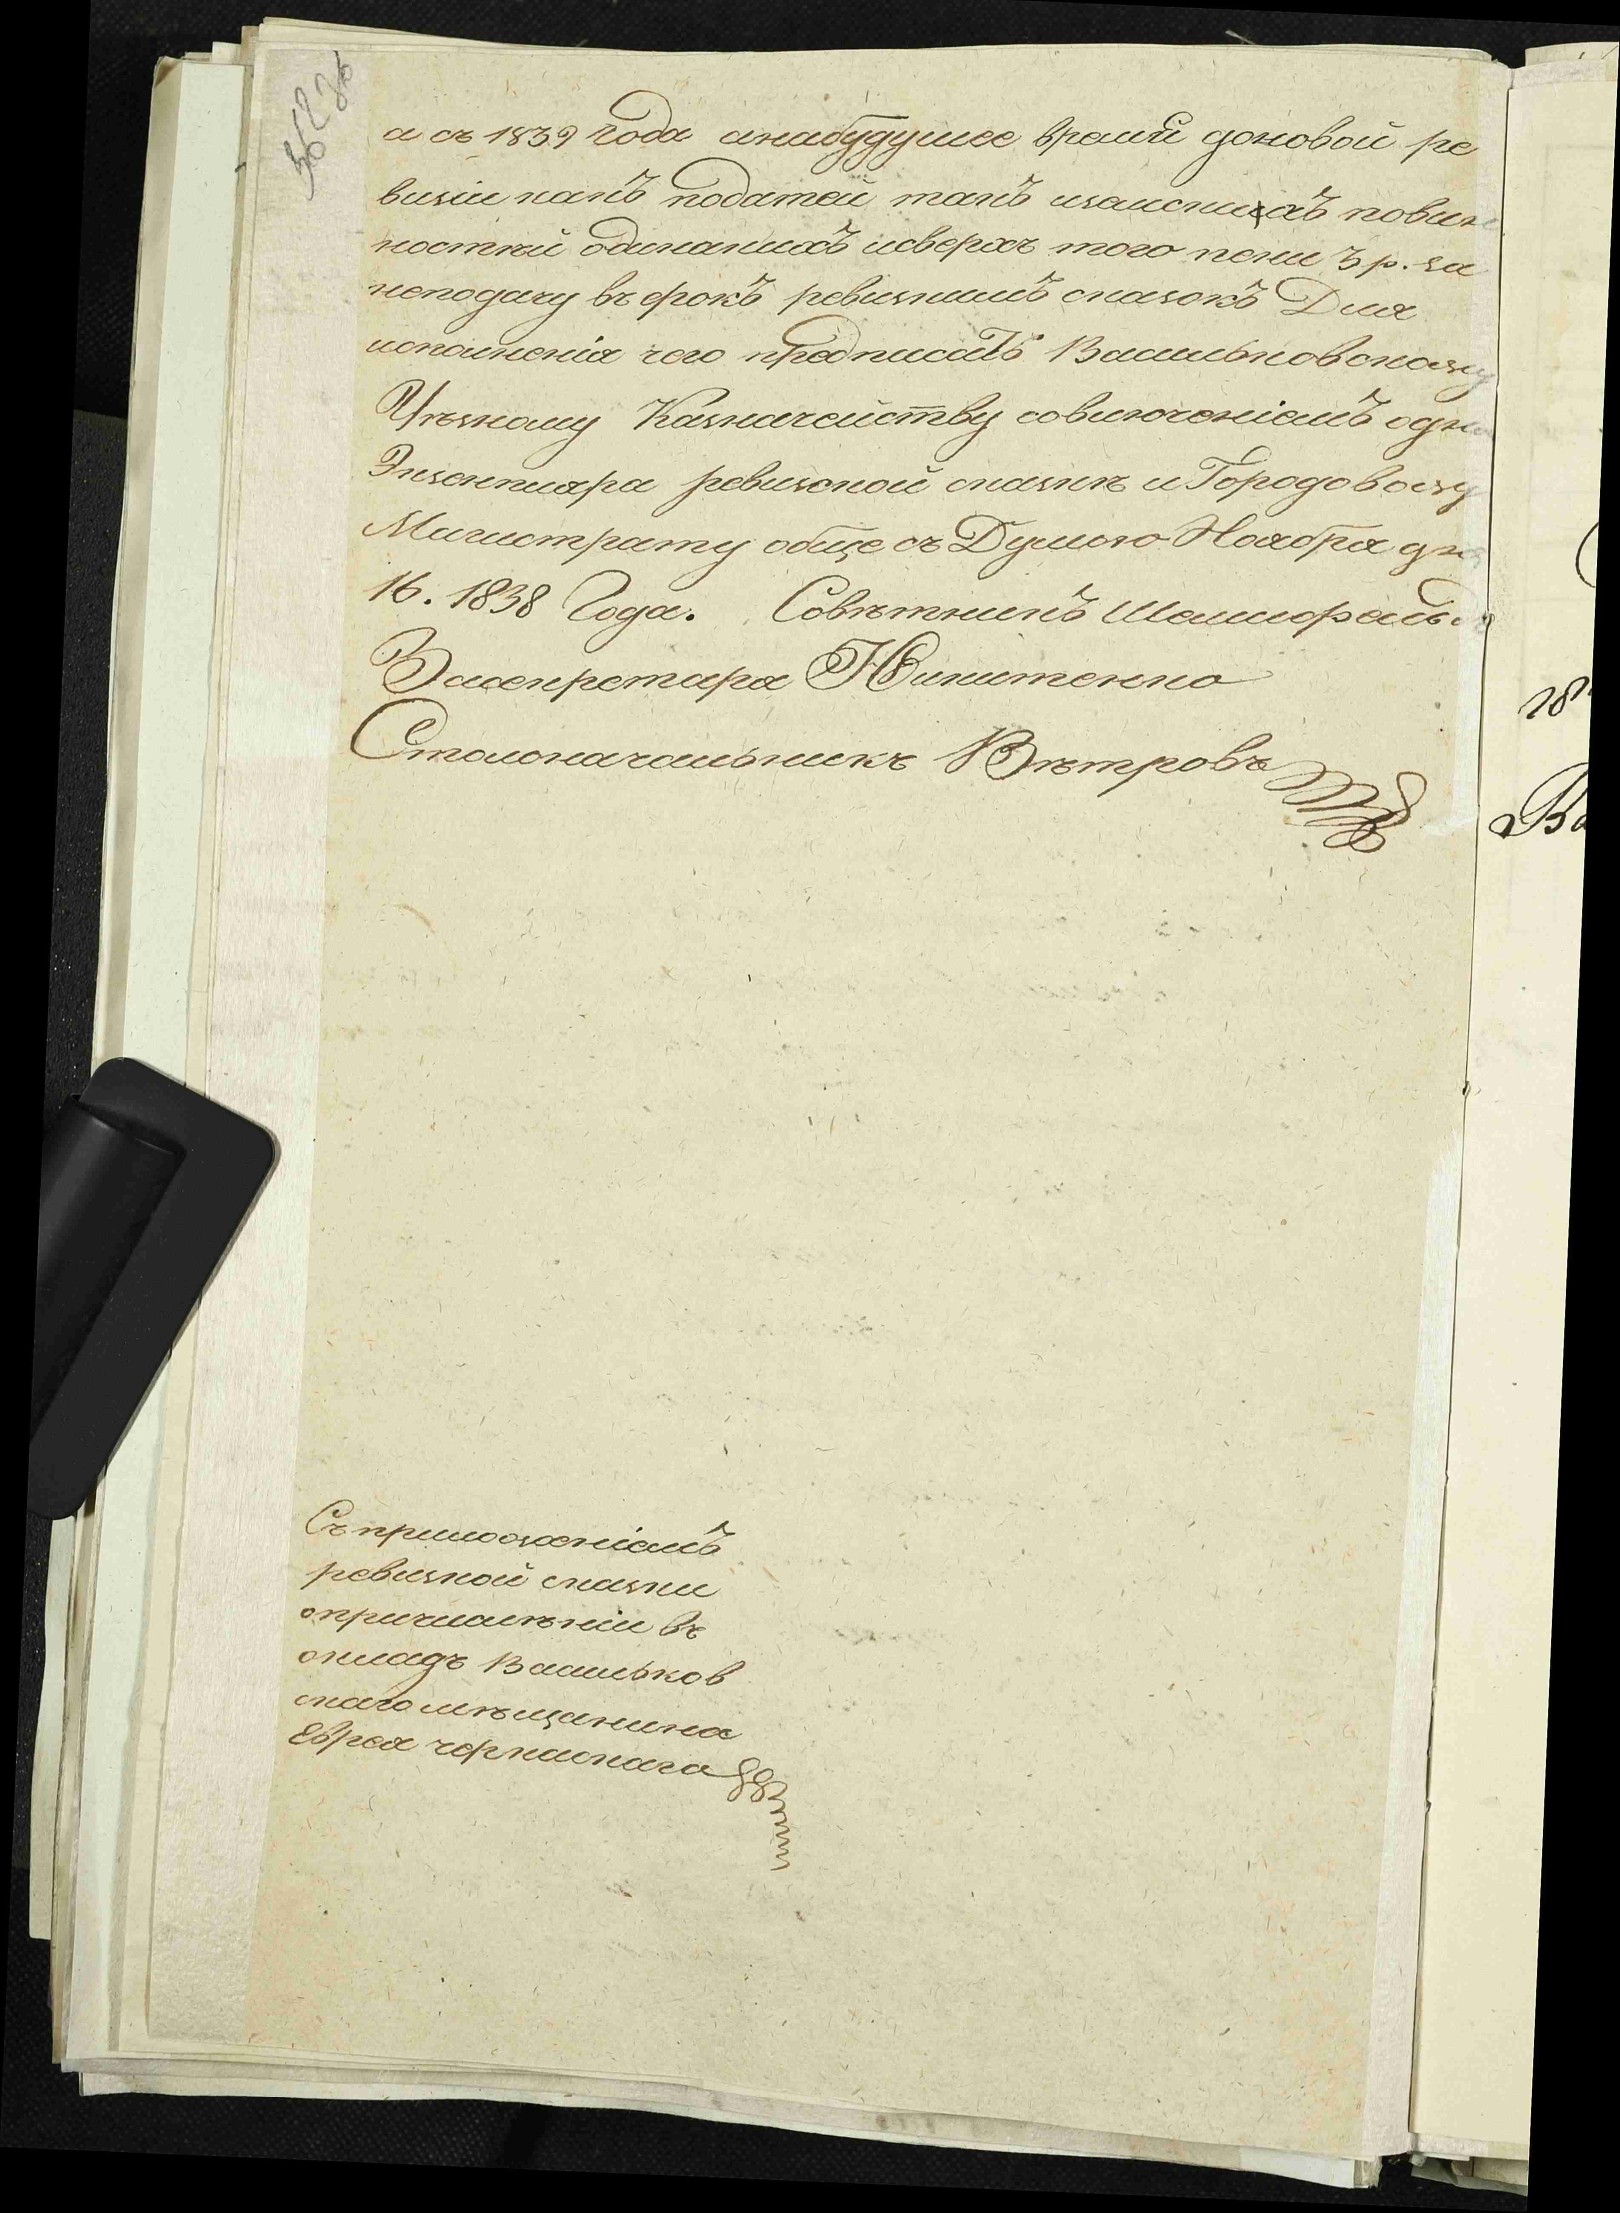 а съ 1839 года анабудущее время доновой ре
визіи какъ податей такъ иземскихъ повин
ностей одинакихъ исверхъ того пени 3 р. за
неподачу въ срокъ ревизкихъ сказокъ Для
исполненія чего предписать Васильковскому
Уѣзному Казначейству совключеніемъ одно
Экземпляра ревизской сказкѣ и Городовому
Магистрату обще съ Думою Ноября дня
16. 1838 Года. Совѣтникъ
Засекретаря Никитенко
Столоначальникъ Вѣтровъ
Съ приложеніемъ
ревизкой сказки
опричисленіи въ
окладъ Васильков
скаго мѣщанина
Еврея чернискага
18
Ва